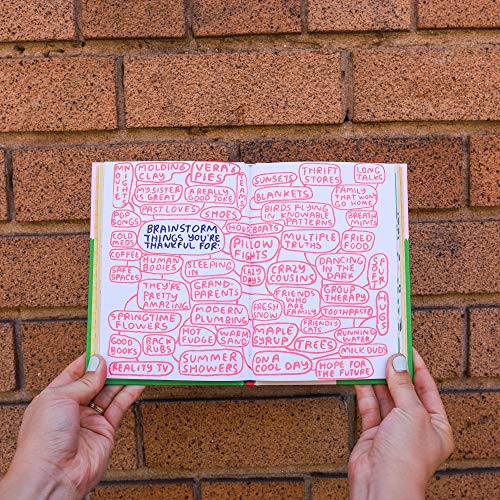 MIDNIGHT
MOVIES
MOLDING
CLAY
VERA'S
PIES
JEANS
MY SISTER
IS GREAT
A REALLY
GOOD JOKE
PAST LOVES
SHOES
POP
SONGS
COLD
MEDS
COFFEE
SAFE
SPACES
BRAINSTORM
THINGS YOU'RE
THANKFUL FOR:
HUMAN
BODIES
SLEEPING
IN
THEY'RE
PRETTY
AMAZING
GRAND-
PARENTS
SPRINGTIME
FLOWERS
MODERN
PLUMBING
GOOD
BOOKS
BACK
RUBS
HOT
FUDGE
WARM
SAND
REALITY TV
SUMMER
SHOWERS
SUNSETS
THRIFT
STORES
LONG
TALKS
BLANKETS
FAMILY
THAT WON'T
GO HOME
BIRDS FLYING
IN KNOWABLE
PATTERNS
BREATH
MINTS
HOUSEBOATS
PILLOW
FIGHTS
MULTIPLE
TRUTHS
FRIED
FOOD
LAZY
DAYS
CRAZY
COUSINS
DANCING
IN THE
DARK
SOFT
SHIRT
FRESH
SNOW
FRIENDS
WHO ARE
FAMILY
GROUP
THERAPY
TOOTHPASTE
HUGS
MAPLE
SYRUP
FRIENDLY
CATS
RUNNING
WATER
TREES
MILK DUDS
ON A
COOL DAY
HOPE FOR
THE FUTURE